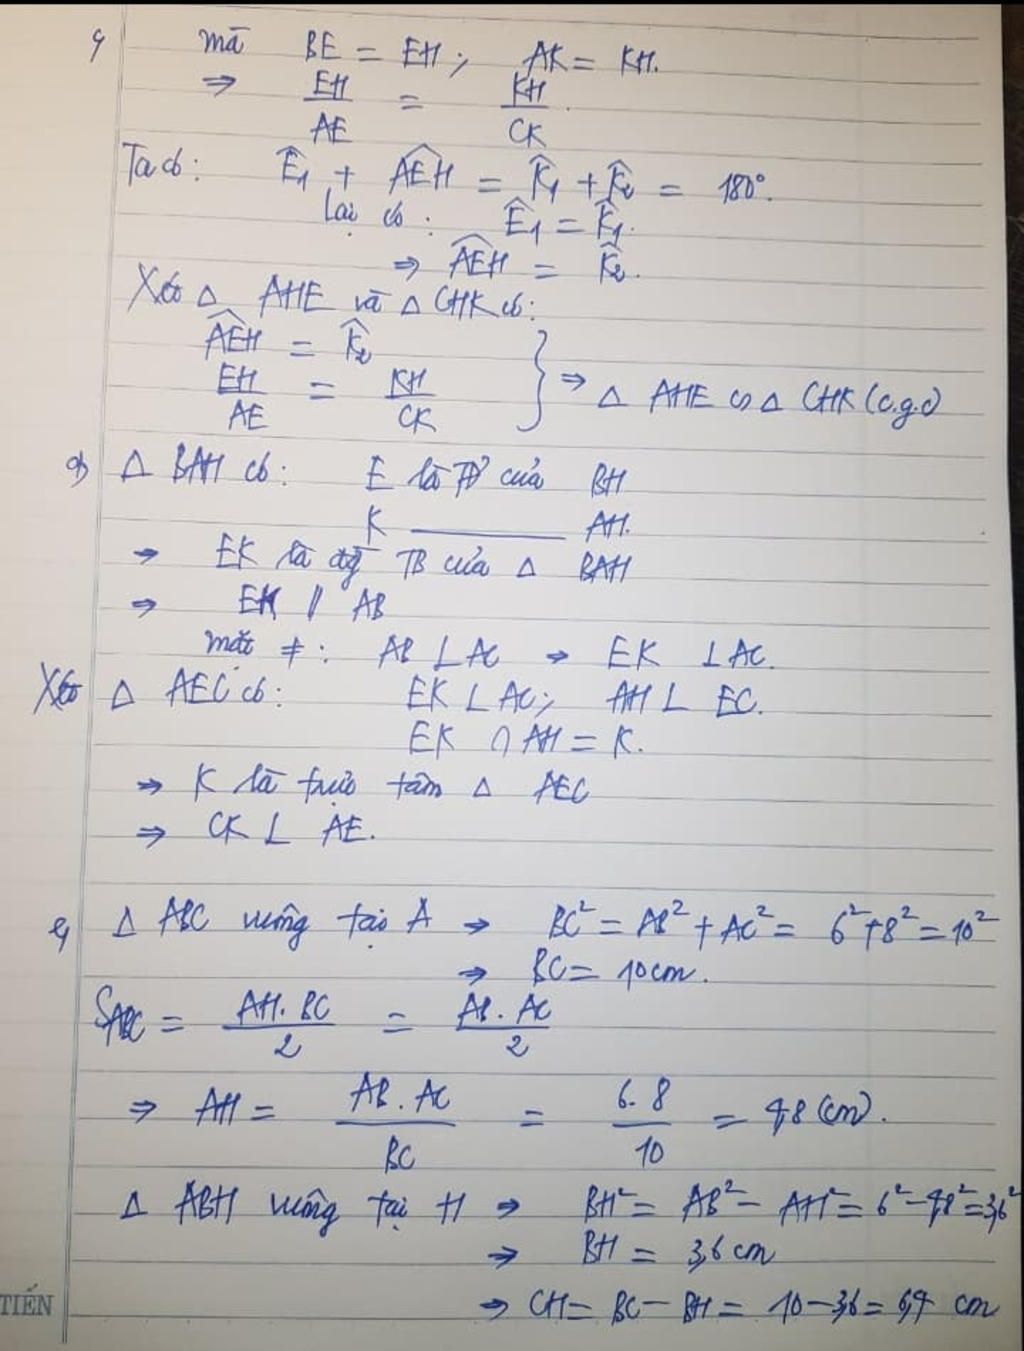 c, mà BE = EH ; AK = KH.
⇒ EH/AE = KH/CK.
Ta có: Ê1 + AEH^ = K̂1 + K̂2 = 180°.
Lại có: Ê1 = K̂1.
⇒ AEH^ = K̂2.
Xét Δ AHE và Δ CHK có:
AEH^ = K̂2
EH/AE = KH/CK } ⇒ Δ AHE ∽ Δ CHK (c.g.c)
d, Δ BAH có: E là TĐ của BH
K ——— AH.
→ EK là đg TB của Δ BAH
⇒ EK // AB
mặt ≠: AB ⊥ AC → EK ⊥ AC.
Xét Δ AEC có: EK ⊥ AC; AH ⊥ EC.
EK ∩ AH = K.
→ K là trực tâm Δ AEC
⇒ CK ⊥ AE.
e, Δ ABC vuông tại A → BC² = AB² + AC² = 6² + 8² = 10²
⇒ BC = 10cm.
SABC = AH. BC/2 = AB. AC/2
⇒ AH = AB. AC/BC = 6. 8/10 = 4,8 (cm).
Δ ABH vuông tại H → BH² = AB² – AH² = 6² – 4,8² = 3,6²
⇒ BH = 3,6 cm
⇒ CH = BC – BH = 10 – 3,6 = 6,4 cm
TIẾN